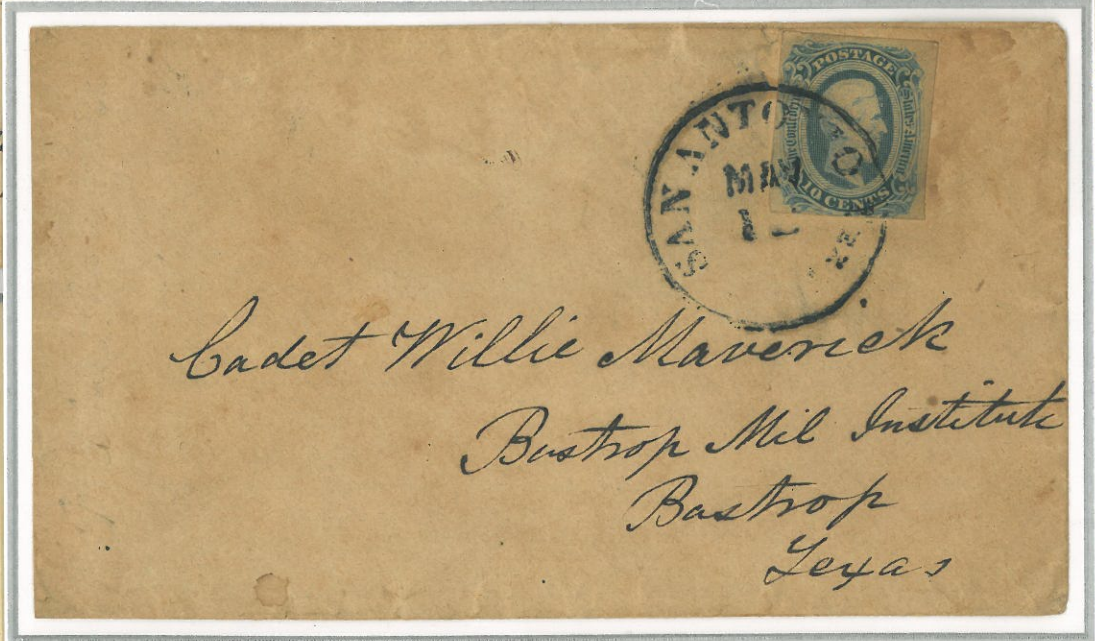 POSTAGE
The Confederate States of America
10 CENTS
SAN ANTONIO TEX
MAY
Cadet Willie Maverick
Bastrop Mil Institute
Bastrop
Texas